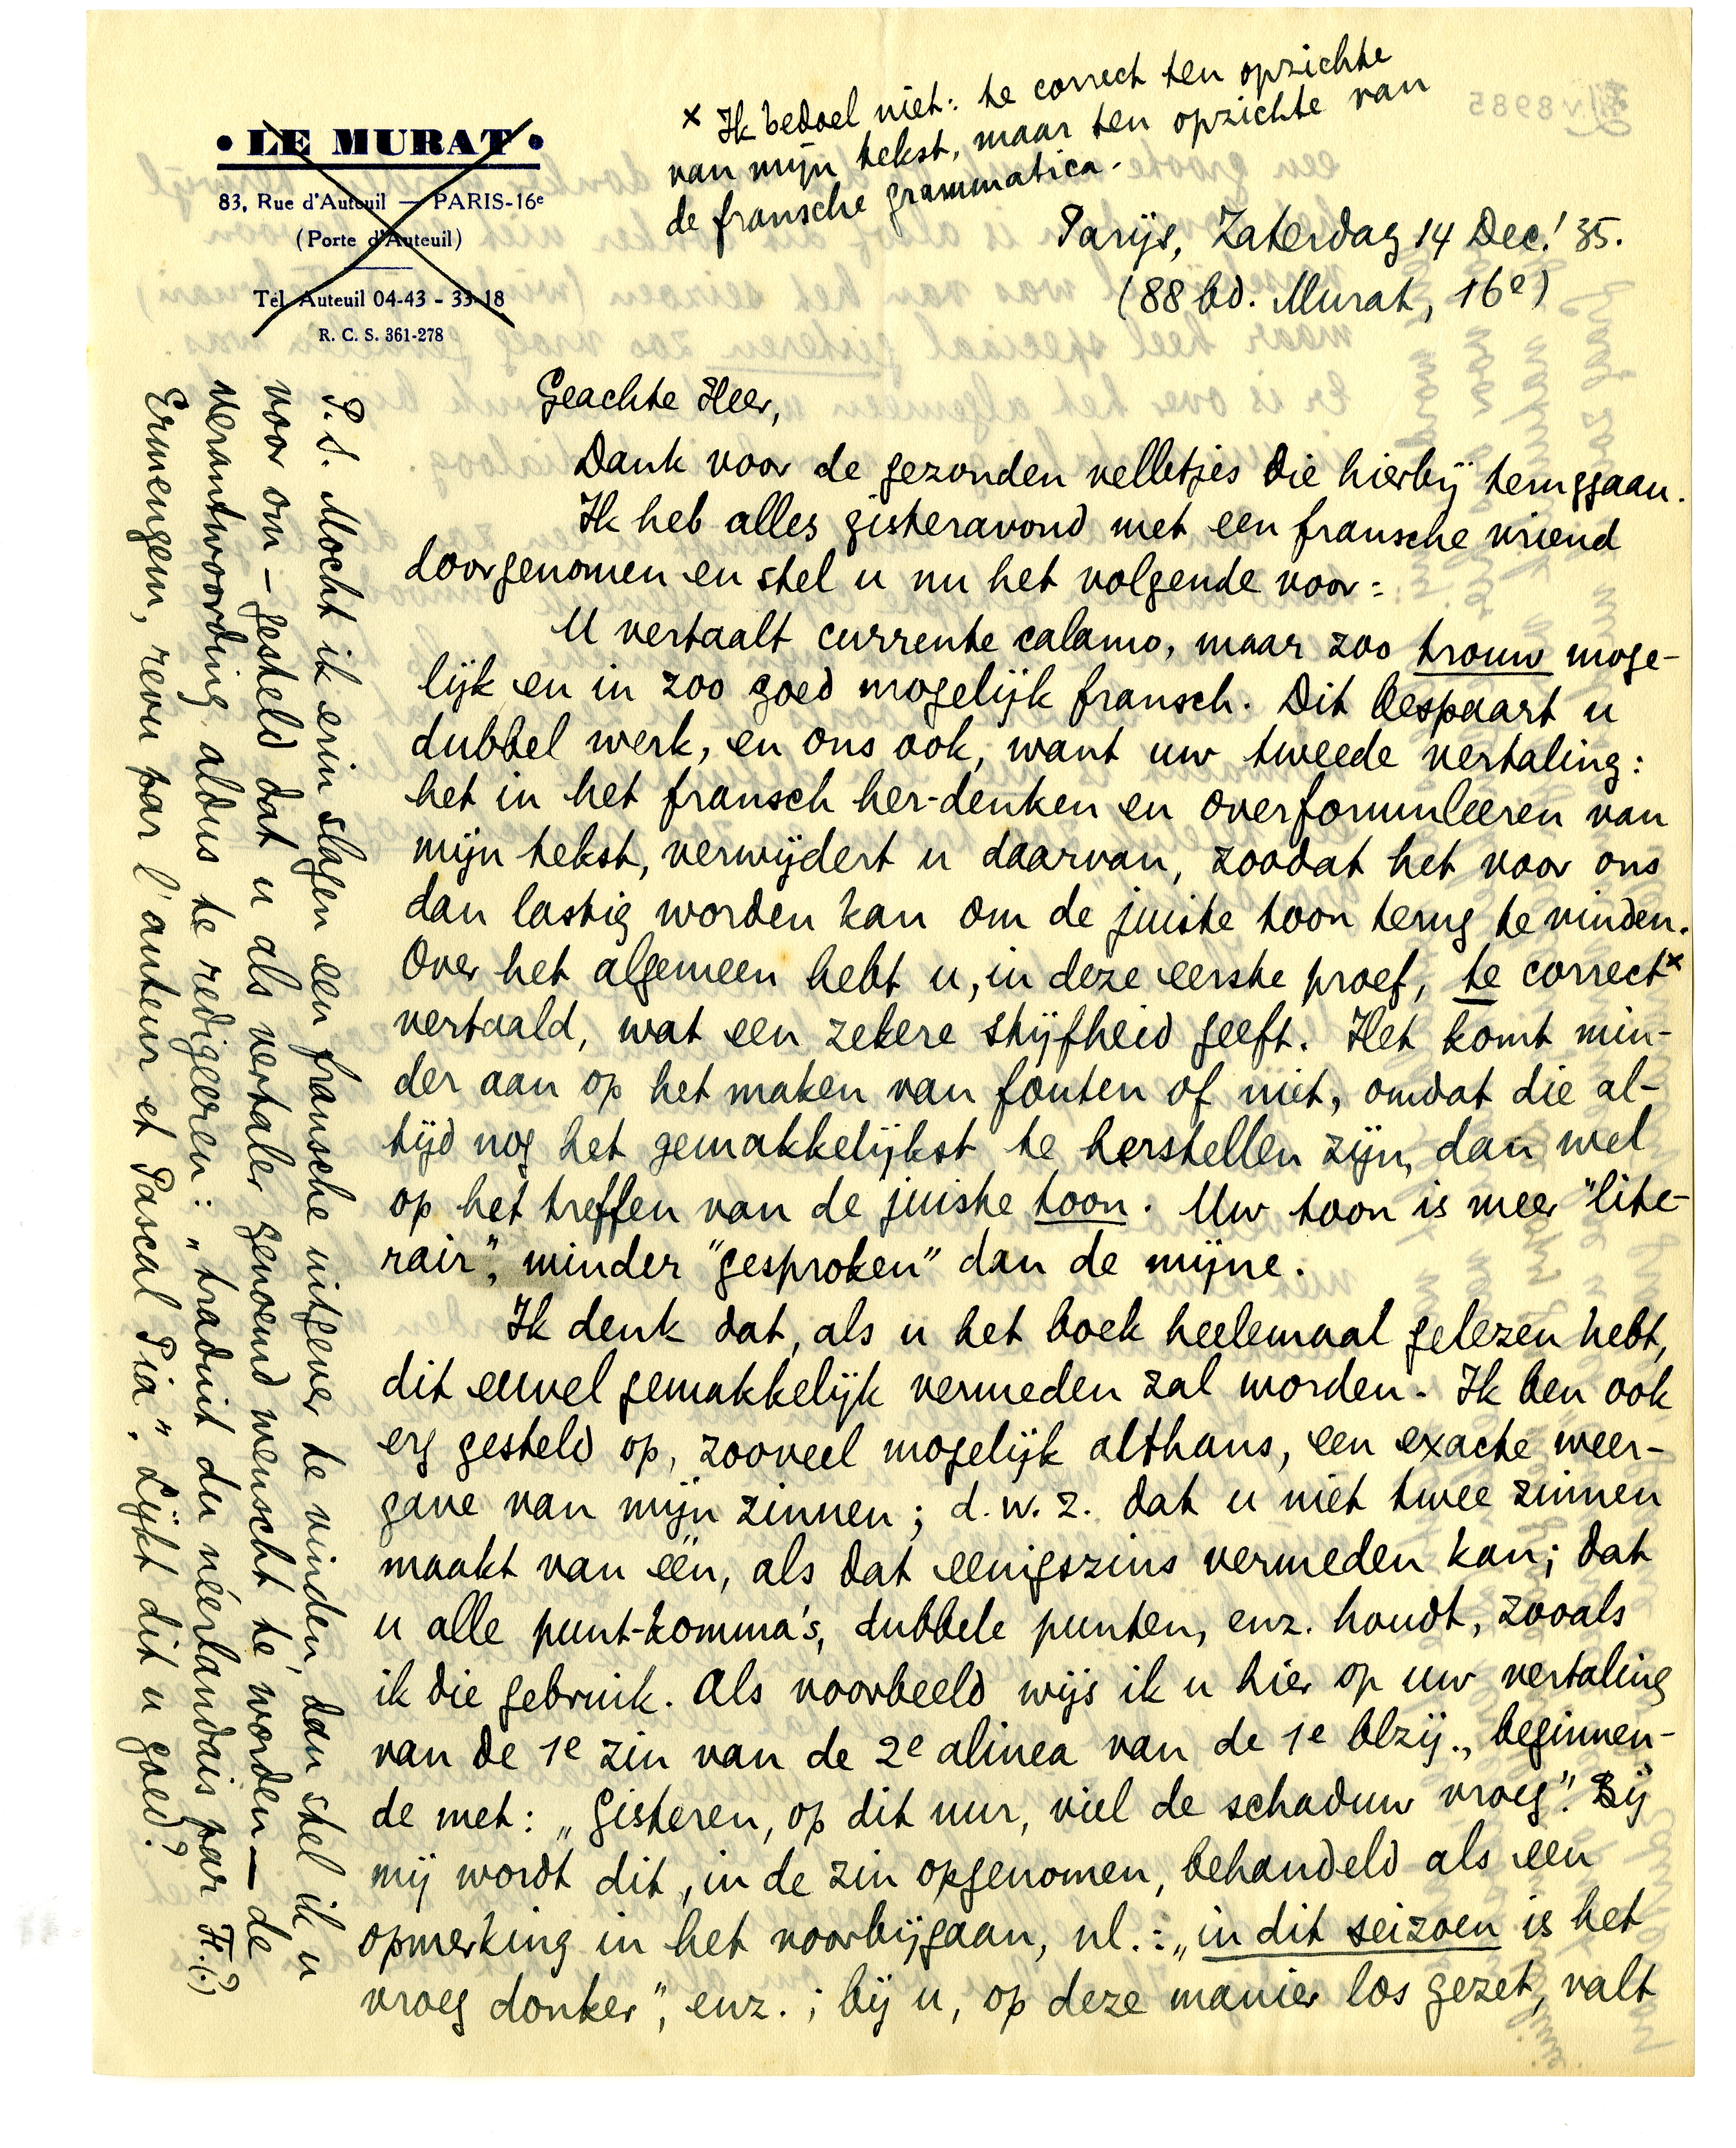 • LE MURAT •
83, Rue d'Auteuil — PARIS-16e
(Porte d'Auteuil)
Tél. Auteuil 04-43 - 33-18
R. C. S. 361-278
x Ik bedoel niet: te correct ten opzichte
van mijn tekst, maar ten opzichte van
de fransche grammatica.
Parijs, Zaterdag 14 Dec.' 35.
(88 bd. Murat, 16e)
Geachte Heer,
Dank voor de gezonden velletjes die hierbij teruggaan.
Ik heb alles gisteravond met een fransche vriend
doorgenomen en stel u nu het volgende voor:
U vertaalt currente calamo, maar zoo trouw moge-
lijk en in zoo goed mogelijk fransch. Dit bespaart u
dubbel werk, en ons ook, want uw tweede vertaling:
het in het fransch her-denken en overformuleeren van
mijn tekst, verwijdert u daarvan, zoodat het voor ons
dan lastig worden kan om de juiste toon terug te vinden.
Over het algemeen hebt u, in deze eerste proef, te correct x
vertaald, wat een zekere stijfheid geeft. Het komt min-
der aan op het maken van fouten of niet, omdat die al-
tijd nog het gemakkelijkst te herstellen zijn, dan wel
op het treffen van de juiste toon. Uw toon is meer "lite-
rair", minder "gesproken" dan de mijne.
Ik denk dat, als u het boek heelemaal gelezen hebt,
dit euvel gemakkelijk vermeden zal worden. Ik ben ook
erg gesteld op, zooveel mogelijk althans, een exacte weer-
gave van mijn zinnen; d.w.z. dat u niet twee zinnen
maakt van één, als dat eenigszins vermeden kan; dat
u alle punt-komma's, dubbele punten, enz. houdt, zooals
ik die gebruik. Als voorbeeld wijs ik u hier op uw vertaling
van de 1e zin van de 2e alinea van de 1e blzij., beginnen-
de met: „Gisteren, op dit uur, viel de schaduw vroeg". Bij
mij wordt dit, in de zin opgenomen, behandeld als een
opmerking in het voorbijgaan, nl.: „in dit seizoen is het
vroeg donker", enz.; bij u, op deze manier los gezet, valt
P.S. Mocht ik erin slagen een fransche uitgever te vinden, dan stel ik u
voor om — gesteld dat u als vertaler genoemd wenscht te worden — de
verantwoording aldus te redigeeren: „traduit du néerlandais par H.(?)
Ermengem, revu par l'auteur et Pascal Pia". Lijkt dit u goed?